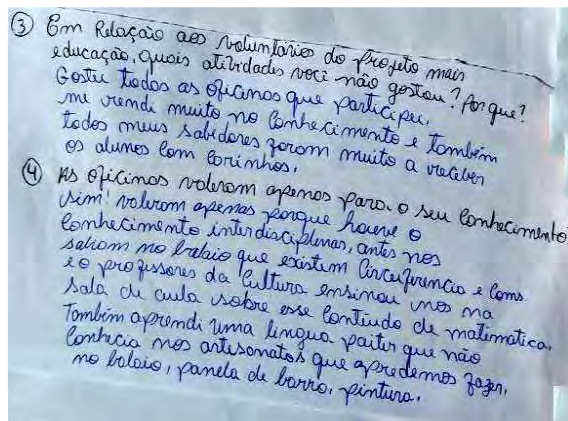 ③ Em Relação aos voluntários do projeto mais
educação, quais atividades você não gostou? Por que?
Gostei todas as oficinas que participei,
me rendi muito no conhecimento e também
todos meus sabedores foram muito a receber
os alunos com carinhos.
④ As oficinas valeram apenas para o seu conhecimento
sim! valeram apenas porque houve o
conhecimento interdisciplinas, antes nos
no balaio que existem Circuferencia e
e o professores da Cultura ensinou nos na
sala de aula sobre esse conteúdo de matimatica.
Também aprendi uma lingua paiter que não
conhecia nos artesonatos que apredemos fazer,
no balaio, panela de barro, pintura.